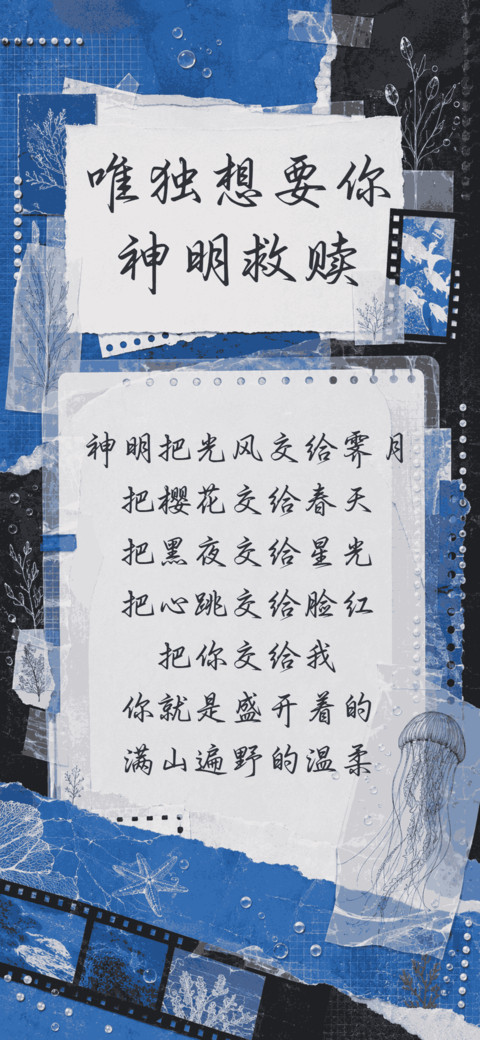 唯独想要你
神明救赎
神明把光风交给霁月
把樱花交给春天
把黑夜交给星光
把心跳交给脸红
把你交给我
你就是盛开着的
满山遍野的温柔